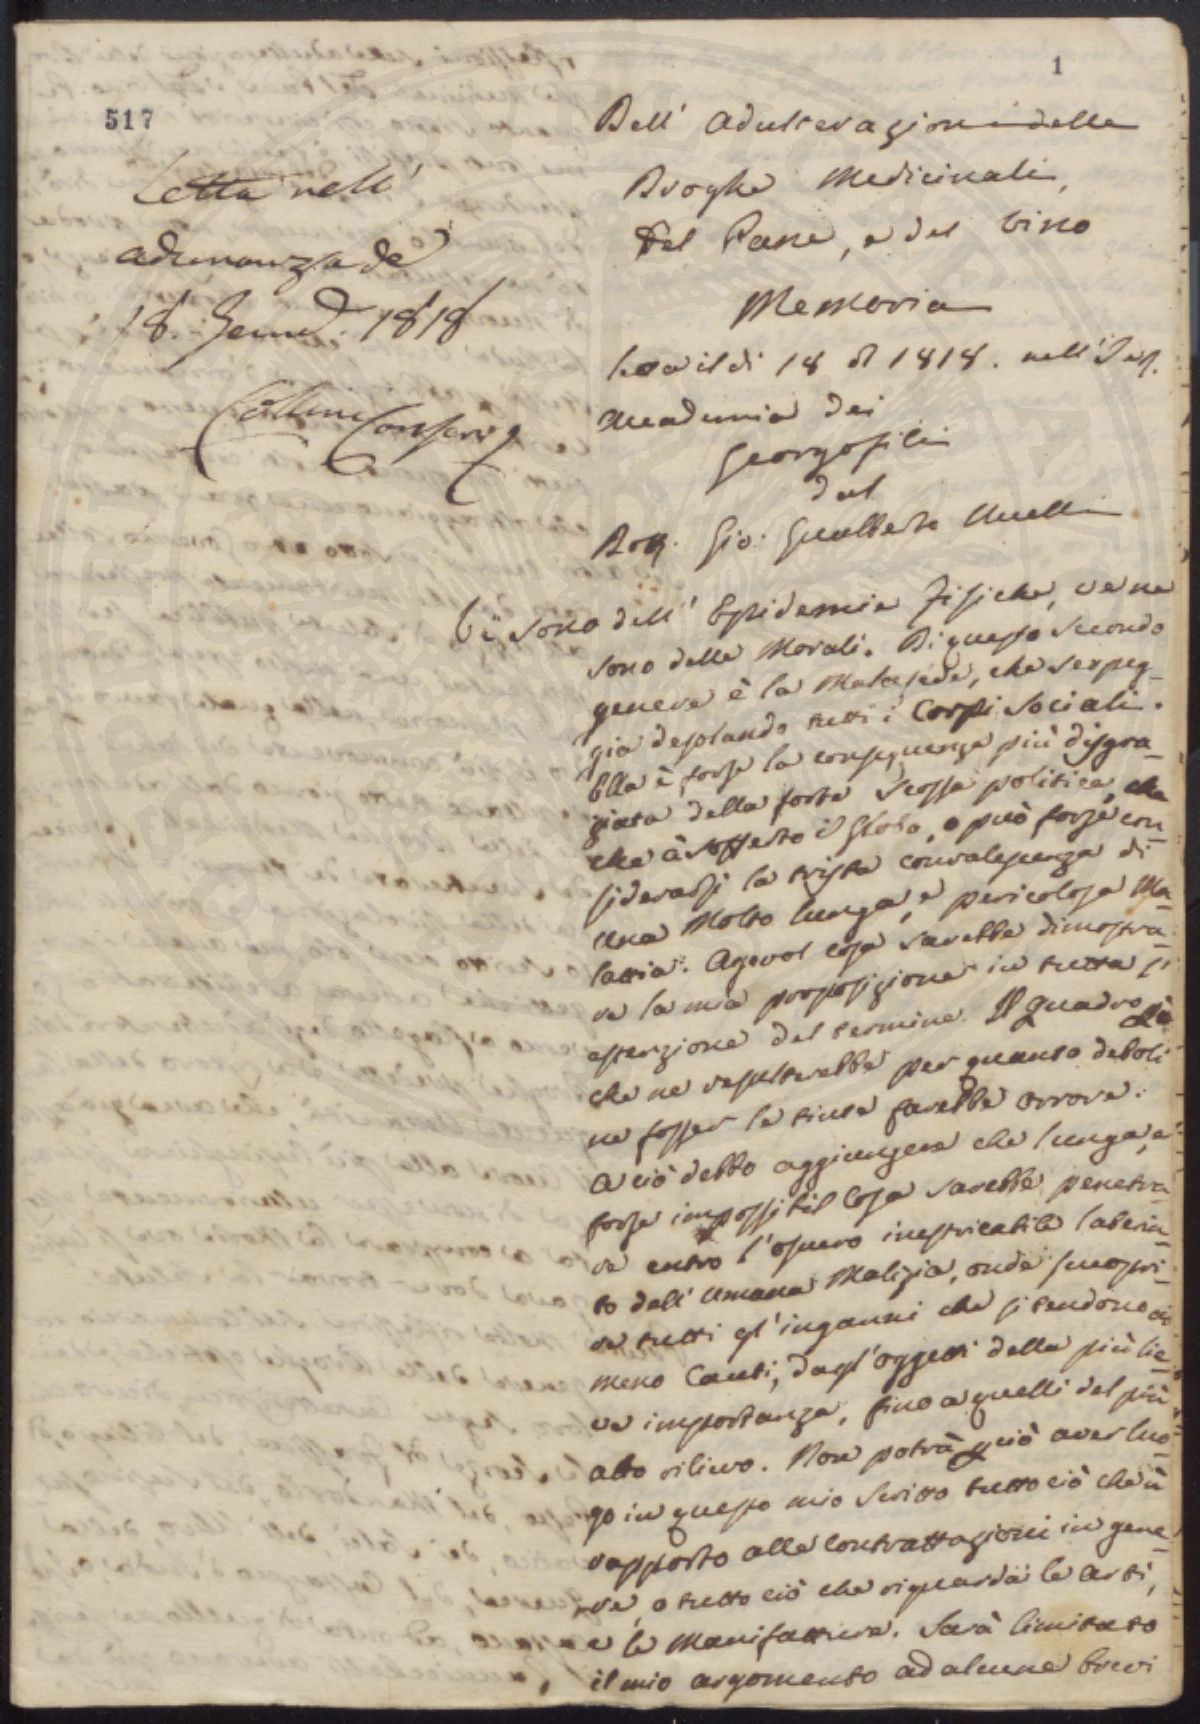 1
517
Letta nell'
adunanza de'
18. Genn. 1818
Collini Conserv.
Dell' Adulterazione delle
Droghe Medicinali,
del Pane, e del Vino
Memoria
Letta il di 18 1818. nell'
Accademia dei
Georgofili
dal
Dott. Gio: Gualberto Uccelli
Vi sono dell' Epidemie Fisiche, ve ne
sono delle Morali. Di questo secondo
genere è la Malafede, che serpeg-
gia desolando tutti i Corpi Sociali.
Ella è forse la conseguenza più disgra-
ziata della forte scossa politica,
che à sofferto il Globo, o può forse con-
siderarsi la trista convalescenza di
una Molto lunga, e pericolosa Ma-
lattia. Agevol cosa sarebbe dimostra-
re la mia proposizione in tutta l'
estenzione del termine. Il quadro
che ne resulterebbe per quanto deboli
ne fosser le tinte farebbe orrore.
A ciò debbo aggiungere che lunga, e
forse impossibil cosa sarebbe penetra-
re entro l'oscuro inestricabile laberin-
to dell' umana Malizia, onde scuopri-
re tutti gl'inganni che si tendono ai
meno Cauti, dagl'oggetti della più lie-
ve importanza, fino a quelli del più
alto rilievo. Non potrà perciò aver luo-
go in questo mio scritto tutto ciò che à
rapporto alle contrattazioni in gene-
re, o tutto ciò che riguarda le arti,
e le Manifatture. Sarà limitato
il mio argomento ad alcune brevi